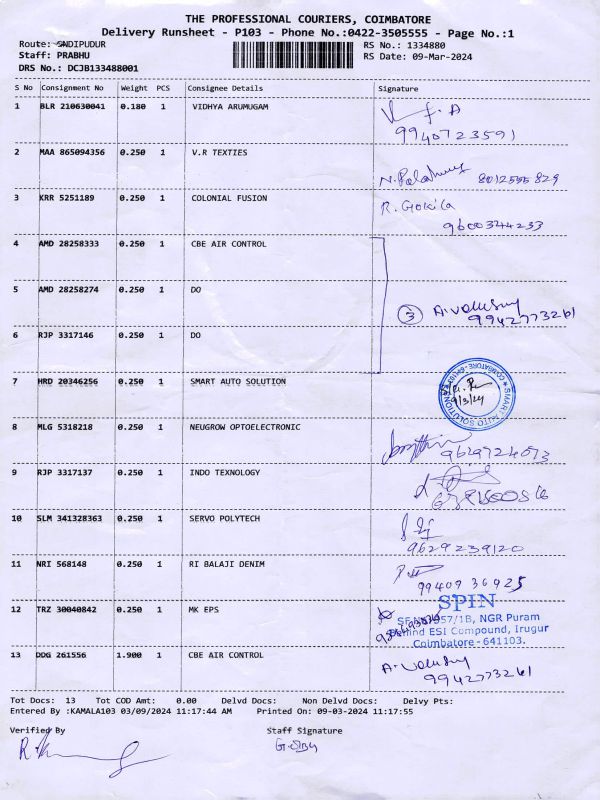 THE PROFESSIONAL COURIERS, COIMBATORE
Delivery Runsheet - P103 - Phone No.:0422-3505555 - Page No.:1
Route: SNDIPUDUR RS No.: 1334880
Staff: PRABHU RS Date: 09-Mar-2024
DRS No.: DCJB133488001
S No Consignment No Weight PCS Consignee Details Signature
1 BLR 210630041 0.180 1 VIDHYA ARUMUGAM
9940723591
2 MAA 865094356 0.250 1 V.R TEXTIES
8012555829
3 KRR 5251189 0.250 1 COLONIAL FUSION R. Gokila
9600344233
4 AMD 28258333 0.250 1 CBE AIR CONTROL
5 AMD 28258274 0.250 1 DO
3 9942773261
6 RJP 3317146 0.250 1 DO
7 HRD 20346256 0.250 1 SMART AUTO SOLUTION
SMART AUTO SOLUTION COIMBATORE
9/3/24
8 MLG 5318218 0.250 1 NEUGROW OPTOELECTRONIC
9629724073
9 RJP 3317137 0.250 1 INDO TEXNOLOGY
10 SLM 341328363 0.250 1 SERVO POLYTECH
9629239120
11 NRI 568148 0.250 1 RI BALAJI DENIM
99409 36925
12 TRZ 30040842 0.250 1 MK EPS
SPIN
57/1B, NGR Puram
Behind ESI Compound, Irugur
Coimbatore-641103.
13 DDG 261556 1.900 1 CBE AIR CONTROL
9942773261
Tot Docs: 13 Tot COD Amt: 0.00 Delvd Docs: Non Delvd Docs: Delvy Pts:
Entered By :KAMALA103 03/09/2024 11:17:44 AM Printed On: 09-03-2024 11:17:55
Verified By Staff Signature